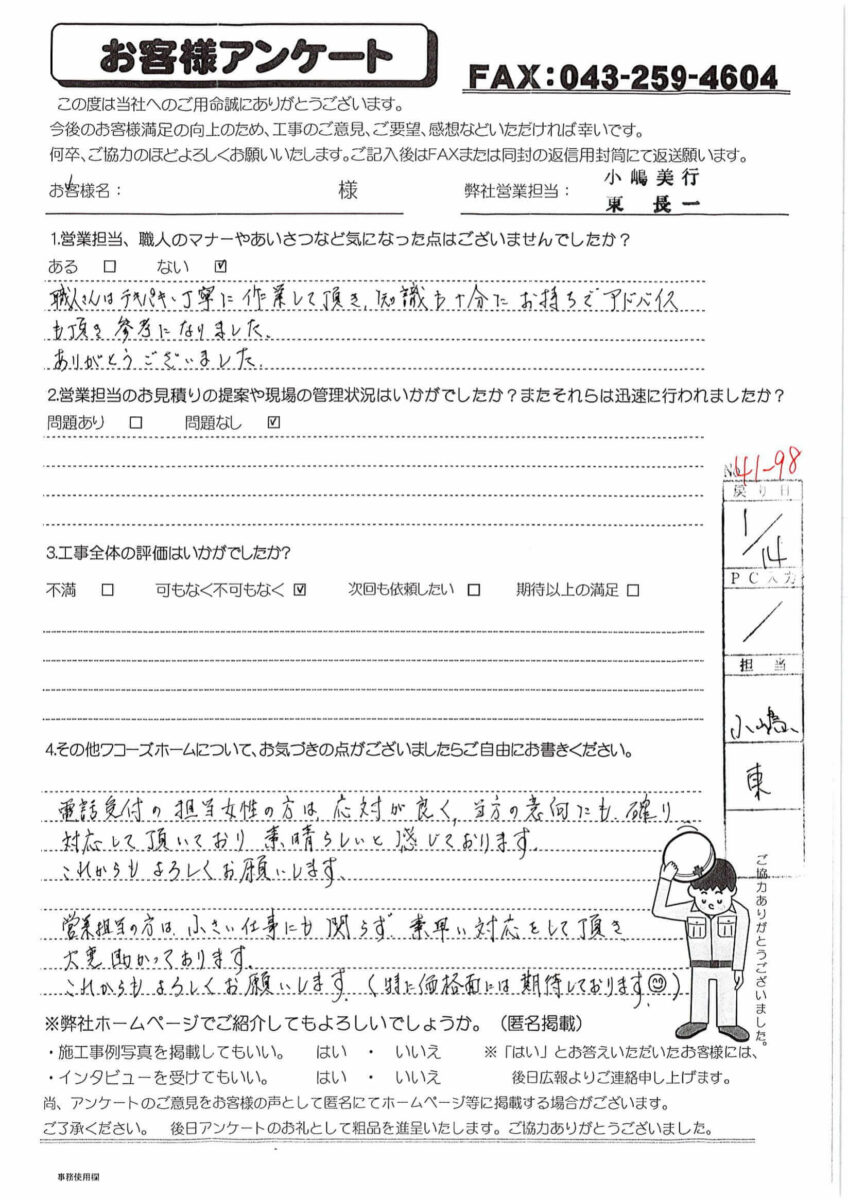 お客様アンケート
FAX:043-259-4604
この度は当社へのご用命誠にありがとうございます。
今後のお客様満足の向上のため、工事のご意見、ご要望、感想などいただければ幸いです。
何卒、ご協力のほどよろしくお願いいたします。ご記入後はFAXまたは同封の返信用封筒にて返送願います。
お客様名： 様 弊社営業担当： 小嶋美行
東 長一
1.営業担当、職人のマナーやあいさつなど気になった点はございませんでしたか？
ある □ ない ☑
職人さんはテキパキ、丁寧に作業して頂き、知識も十分にお持ちでアドバイス
も頂き参考になりました。
ありがとうございました。
2.営業担当のお見積りの提案や現場の管理状況はいかがでしたか？またそれらは迅速に行われましたか？
問題あり □ 問題なし ☑
No.41-98
戻り日
1/14
3.工事全体の評価はいかがでしたか?
PC入力
不満 □ 可もなく不可もなく ☑ 次回も依頼したい □ 期待以上の満足 □
/
担当
小嶋
東
4.その他ワコーズホームについて、お気づきの点がございましたらご自由にお書きください。
電話受付の担当女性の方は、応対が良く、当方の意向にも、確り
対応して頂いており 素晴らしいと感じております。
これからもよろしくお願いします。
営業担当の方は、小さい仕事にも関らず 素早い対応をして頂き
大変助かっております。
これからもよろしくお願いします。(特に価格面には期待しております)
ご協力ありがとうございました。
※弊社ホームページでご紹介してもよろしいでしょうか。（匿名掲載）
・施工事例写真を掲載してもいい。 はい ・ いいえ ※「はい」とお答えいただいたお客様には、
・インタビューを受けてもいい。 はい ・ いいえ 後日広報よりご連絡申し上げます。
尚、アンケートのご意見をお客様の声として匿名にてホームページ等に掲載する場合がございます。
ご了承ください。 後日アンケートのお礼として粗品を進呈いたします。ご協力ありがとうございました。
事務使用欄